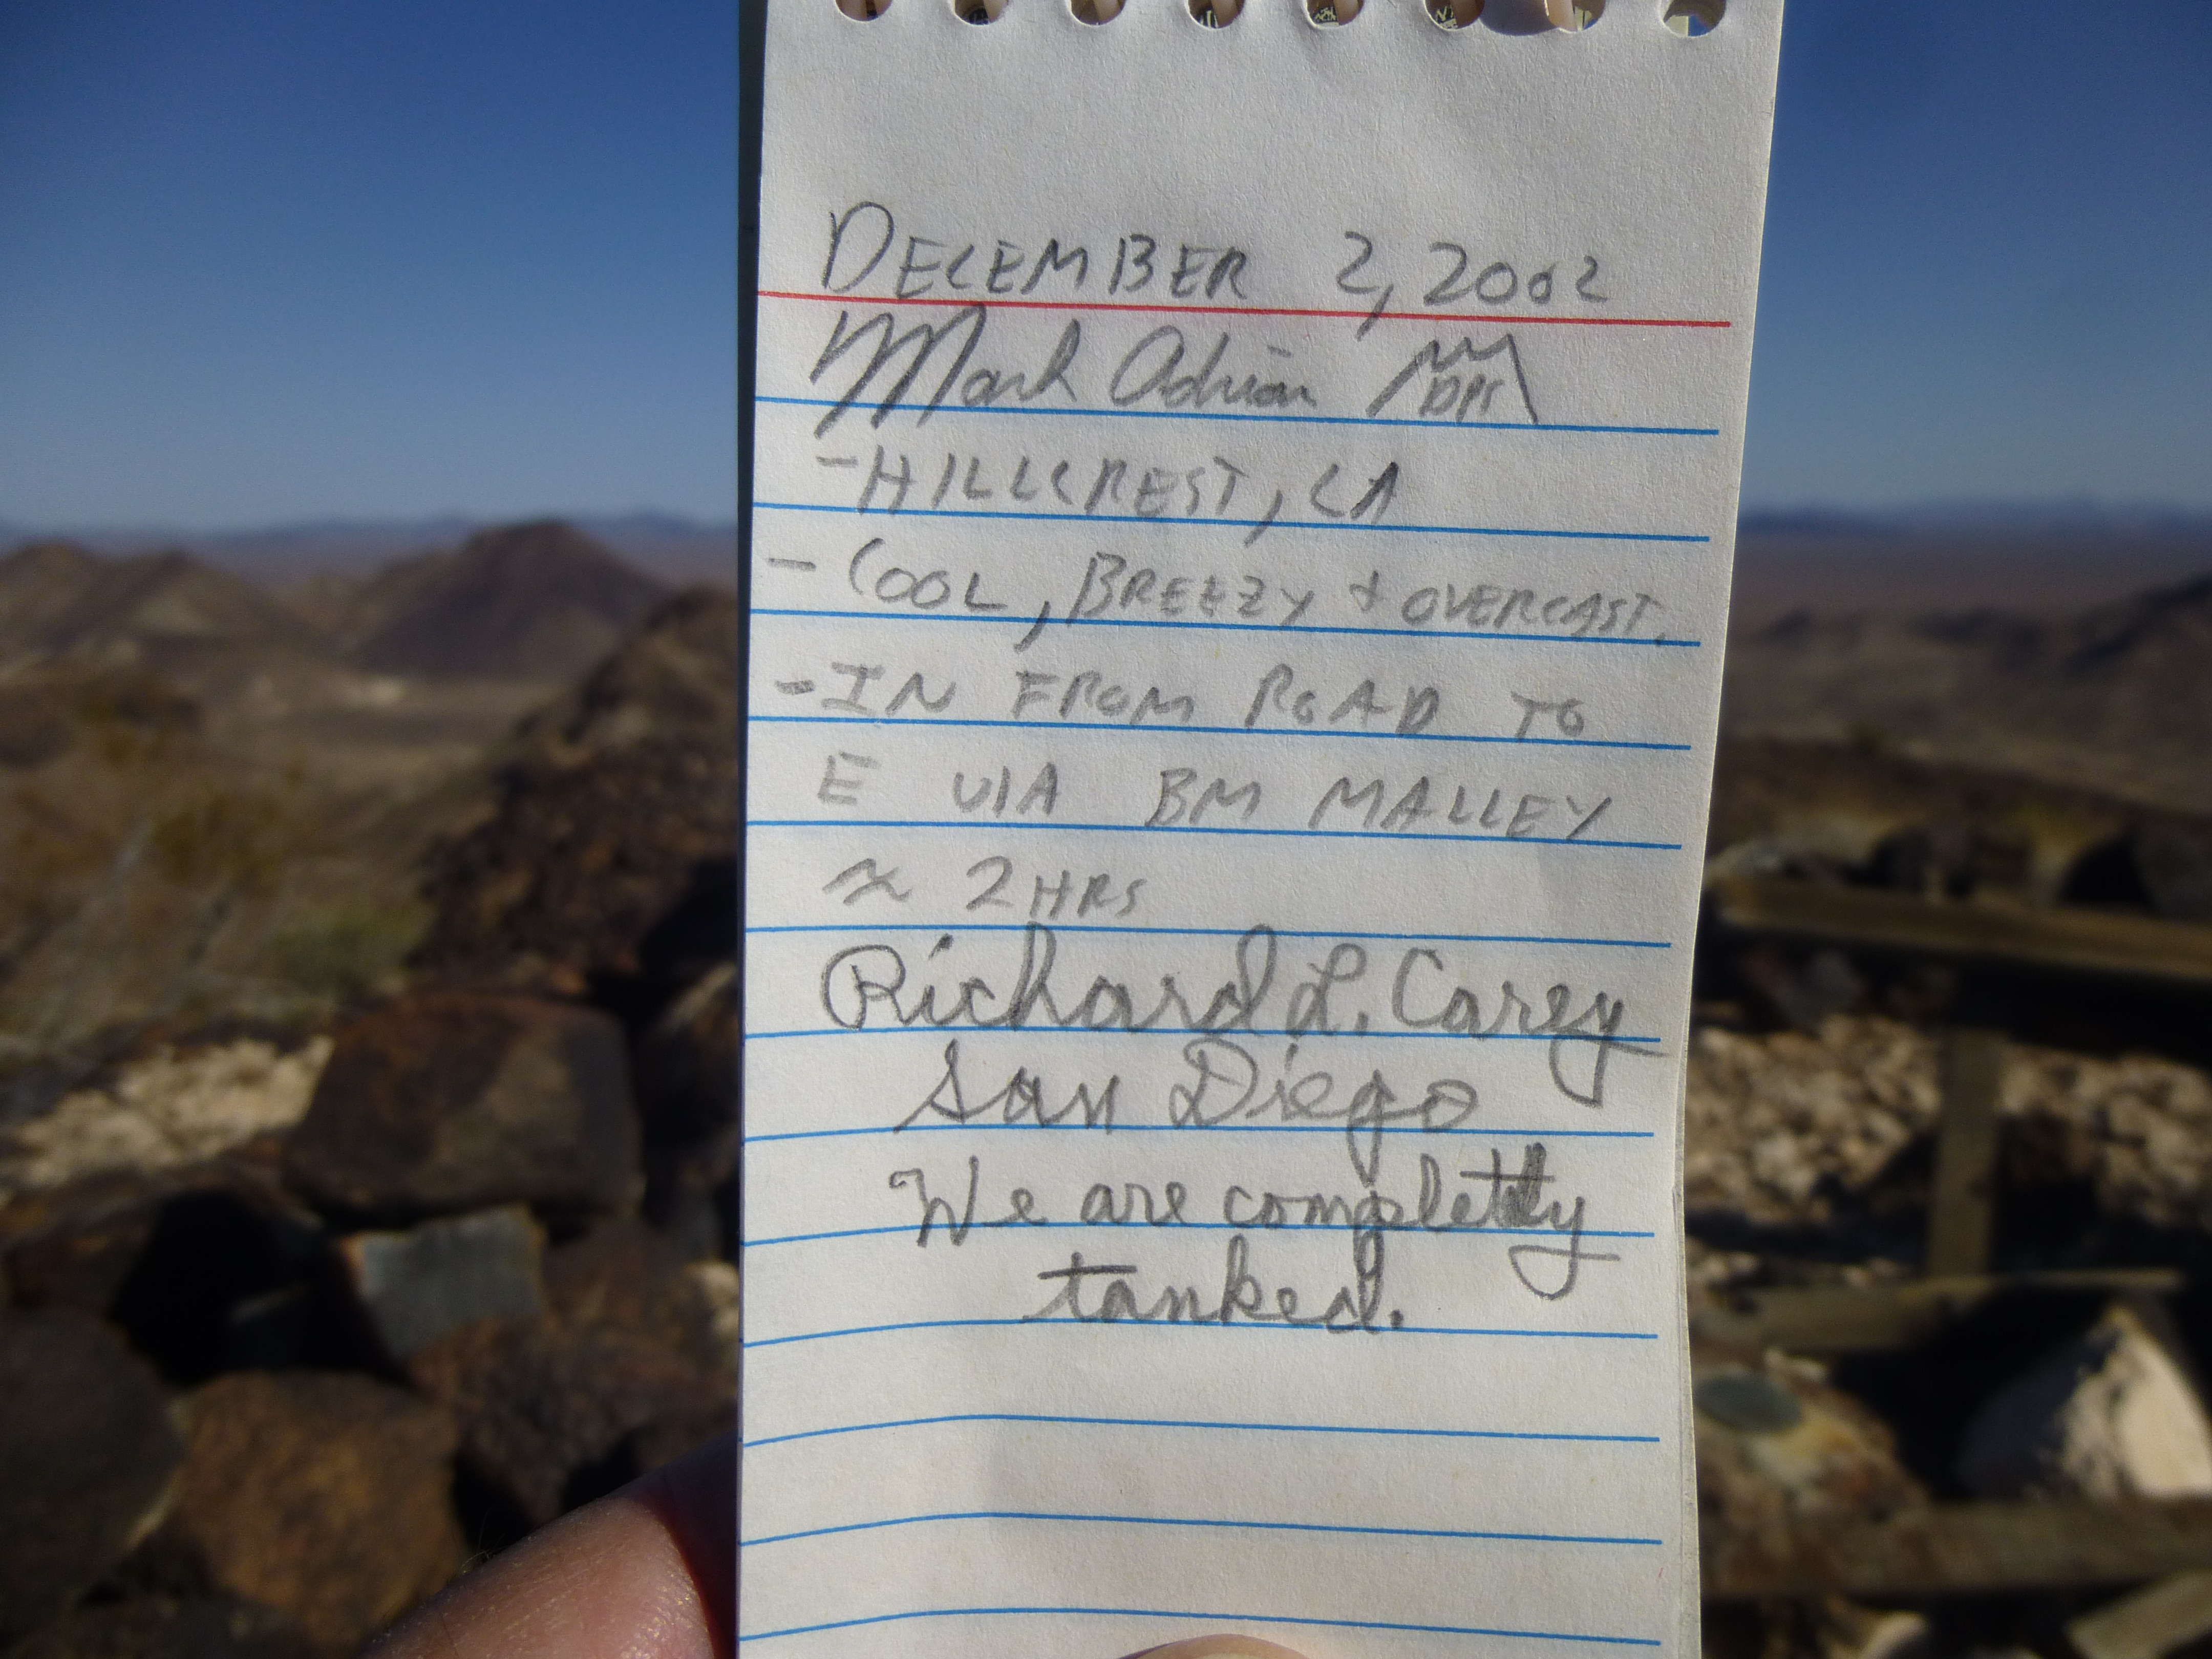 DECEMBER 2, 2002
Mark Adrian DPS
-HILLCREST, CA
- COOL, BREEZY & OVERCAST.
-IN FROM ROAD TO
E VIA BM MALLEY
≈ 2 HRS
Richard L. Carey
San Diego
We are completly
tanked.